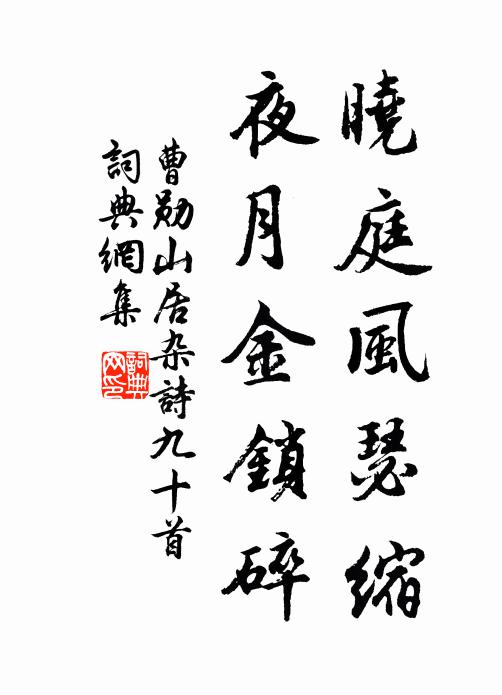 曉庭風瑟縮
夜月金鎖碎
曹勛山居杂詩九十首
詞典網集
詞典網印